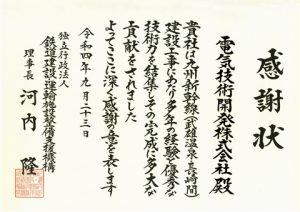 感謝状
電気技術開発株式会社 殿
貴社は九州新幹線(武雄温泉・長崎間)
建設工事にあたり多年の経験と優秀な
技術力を結集しその完成に多大な
貢献をされました
よってここに深く感謝の意を表します
令和四年九月二十三日
独立行政法人
鉄道建設・運輸施設整備支援機構
理事長 河内 隆